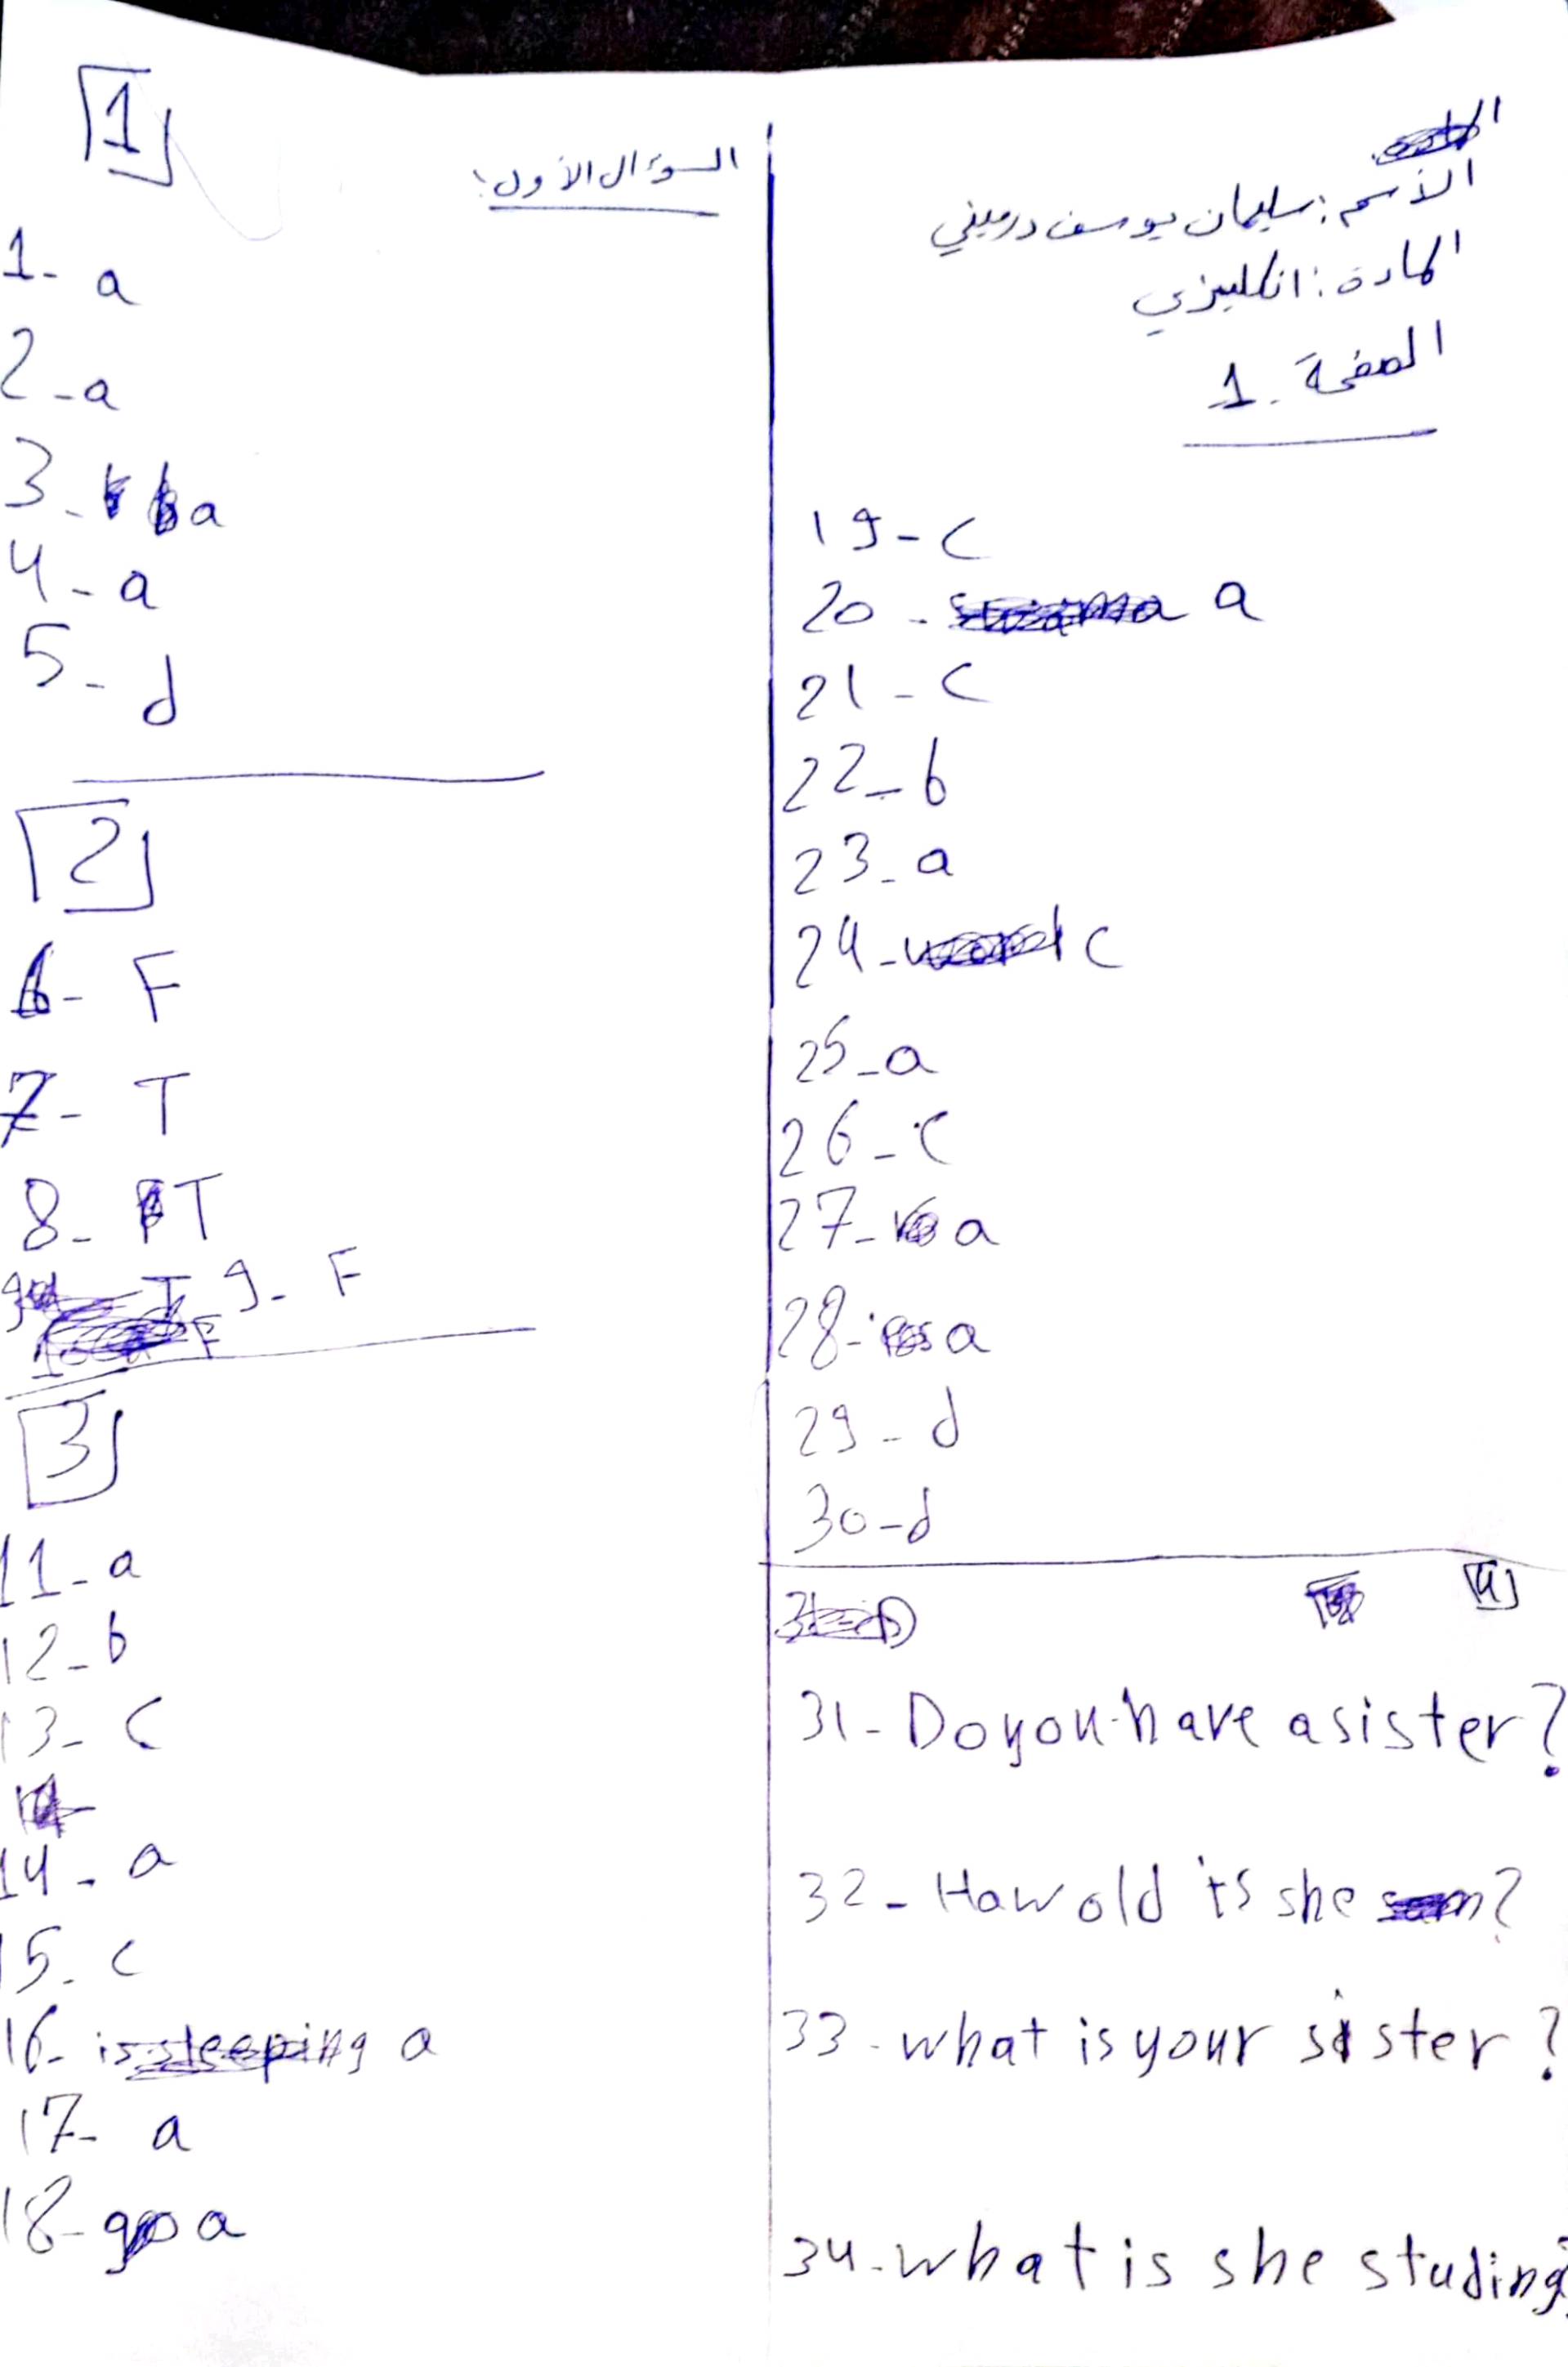 الأسم: سليمان يوسف درميني
المادة: انكليزي
الصفحة. 1
السؤال الأول:
1
1- a
2- a
3- a
4- a
5- d
2
6- F
7- T
8- T
9- F
3
11- a
12- b
13- c
14- a
15- c
16- a
17- a
18- a
19- c
20- a
21- c
22- b
23- a
24- c
25- a
26- c
27- a
28- a
29- d
30- d
4
31- Do you have a sister?
32- How old is she ?
33- what is your sister ?
34- what is she studing